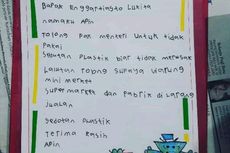 Bapak Enggartiasto Lukita
namaku APin
Tolong Pak menteri untuk tidak
Pakai
Sedotan Plastik biar tidak merusak
Lautan Tolong Supaya warung
mini market
super market dan Pabrik di larang
Jualan
gedotan Plastik
Terima kasih
APin